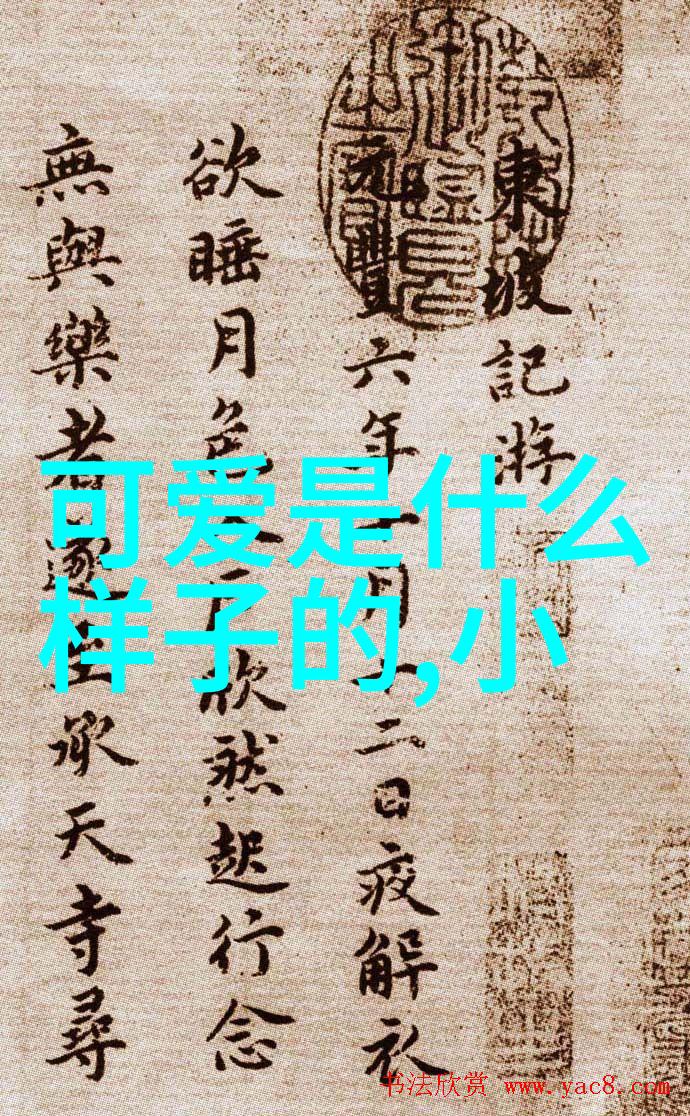 東坡記游
元豐六年十月十二日夜解衣
欲睡月色入户欣然起行念
無與樂者遂至承天寺尋
可爱是什么
样子的,小
书法欣赏 www.yac8.com